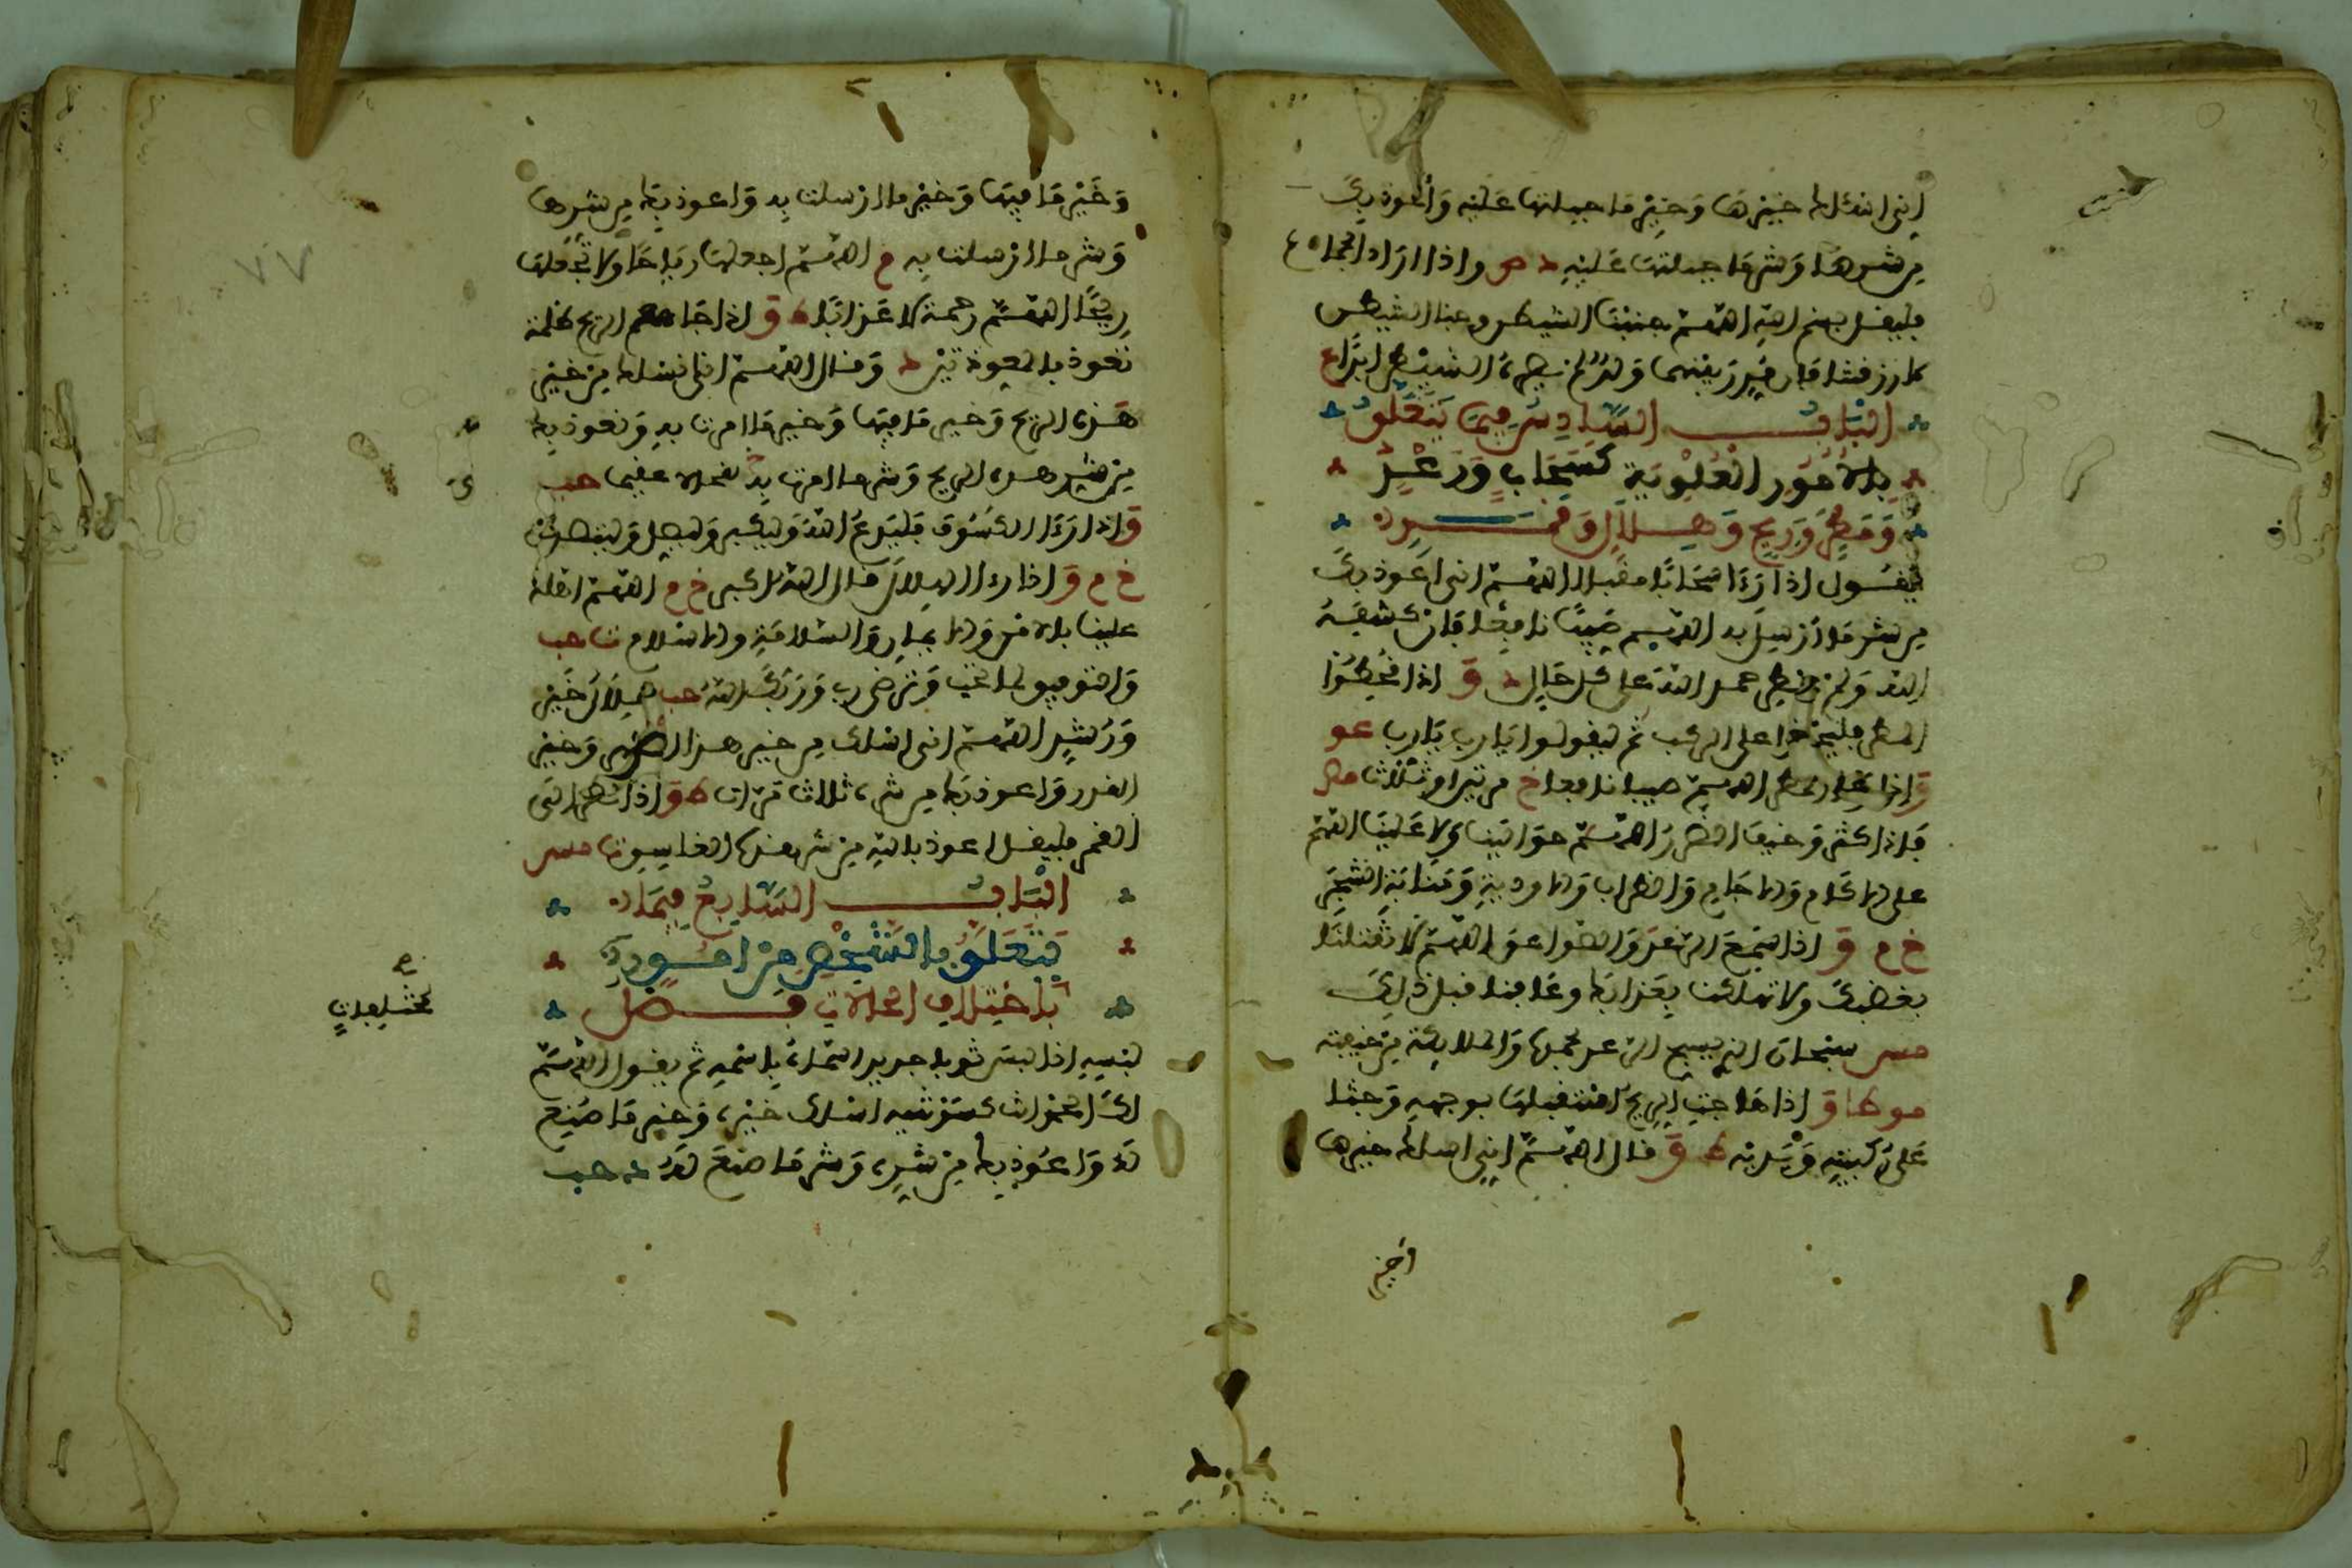 إني اسئلك خيرها وخير ما جبلتها عليه وأعوذ بك
من شرها وشر ما جبلتها عليه د ص واذا اراد الجماع
فليقل بسم الله اللهم جنبنا الشيطن وجنب الشيطن
ما رزقتنا فان قدر بينهما ولد لم يضره الشيطن ابدا ع
الباب السادس فيما يتعلق
بالامور العلوية كسحاب ورعد
ومطر وريح وهلال وقمر
يقول اذا رءا سحابا مقبلا اللهم اني اعوذ بك
من شر ما أرسل به اللهم صيبا نافعا فان كشفه
الله ولم يمطر حمد الله على كل حال د ق اذا قحطوا
المطر فليجثوا على الركب ثم ليقولوا يا رب يا رب عو
واذا المطر اللهم صيبا نافعا خ مرتين او ثلاث مص
فاذا كثر وخيف الضرر اللهم حوالينا ولا علينا اللهم
على الاكام والاجام والضراب والاودية ومنابة الشجر
خ م ق اذا سمع الرعد والصواعق اللهم لا تقتلنا
بغضبك ولا تهلكنا بعذابك وعافنا قبل ذلك
مس سبحان الذي يسبح الرعد بحمده والملائكة من خيفته
مو طا ق اذا هاجت الريح استقبلها بوجهه وجثا
على ركبتيه ويديه ط ق قال اللهم إني اسئلك خيرها
وخير
وخير ما فيها وخير ما ارسلت به واعوذ بك من شرها
وشر ما ارسلت به م اللهم اجعلها رياحا ولا تجعلها
ريحا اللهم رحمة لا عذابا ط ق اذا جا مع الريح ظلمة
تعوذ بالمعوذتين د وقال اللهم انا نسئلك من خير
هذه الريح وخير ما فيها وخير ما امرت به ونعوذ بك
من شر هذه الريح وشر ما امرت به لقحا لا عقيما حب
واذا رءا الكسوف فليدع الله وليكبر وليصل وليتصدق
خ م ق اذا رءا الهلال قال الله اكبر خ م اللهم اهله
علينا بالامن والايمان والسلامة والاسلام ت حب
والتوفيق لما تحب وترضى رب وربك الله حب هلال خير
ورشد اللهم اني اسئلك من خير هذا الشهر وخير
القدر واعوذ بك من شره ثلاث مرات ط ق واذا نظر الى
القمر فليقل اعوذ بالله من شر هذا الغاسق ت مس
الباب السابع فيما
يتعلق بالشخص من امور
باختلاف الحالات فصل
مختلفات
لبسه اذا لبس ثوبا جديدا سماه باسمه ثم يقول اللهم
لك الحمد انت كسوتنيه اسئلك خيره وخير ما صنع
له واعوذ بك من شره وشر ما صنع له د حب